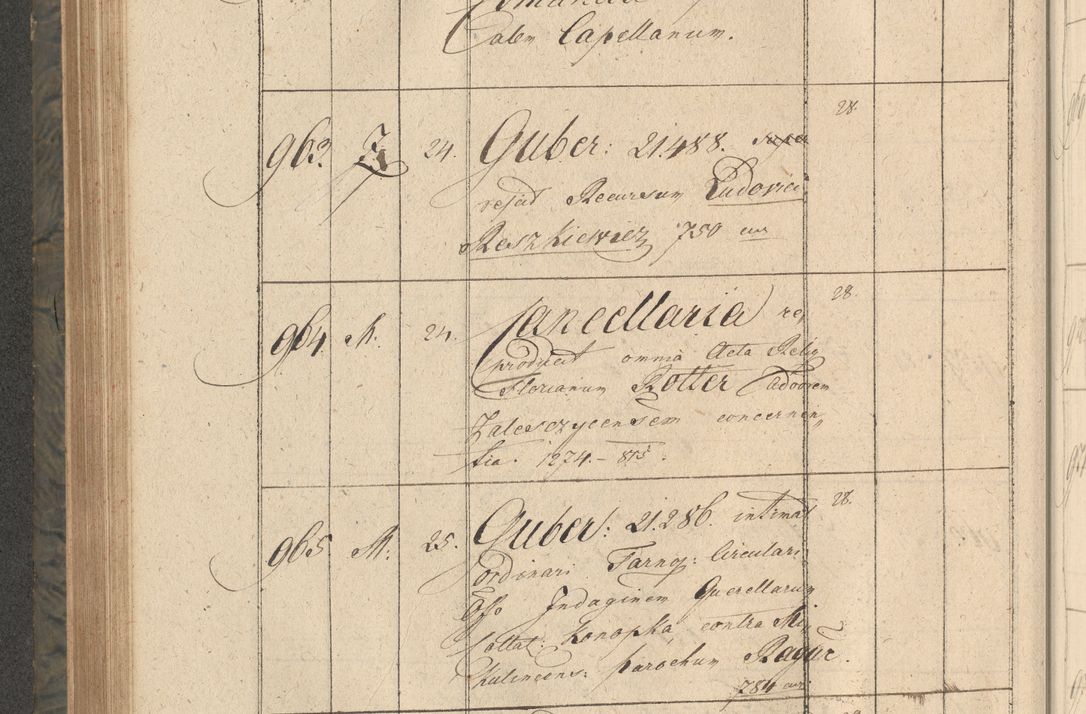 calem Capellanum.
963. J. 24. Guber: 21.488. super 28.
rejid Recursum Ludovici
Reszkiewicz 750 eur
964. M. 24. Cancellaria re, 28.
producit omnia Acta Relig
Florianum Rotter Cadoorem
Zalesczycensem concernen,,
tia. 1274.-875.
965. M. 25. Guber: 21.286. intimat 28.
ordinari Tarnop: Circulari
Offo Indaginem Querellarum
Collat: Konopka contra Mi,,
kulincens: parochum Ragur.
784 eur